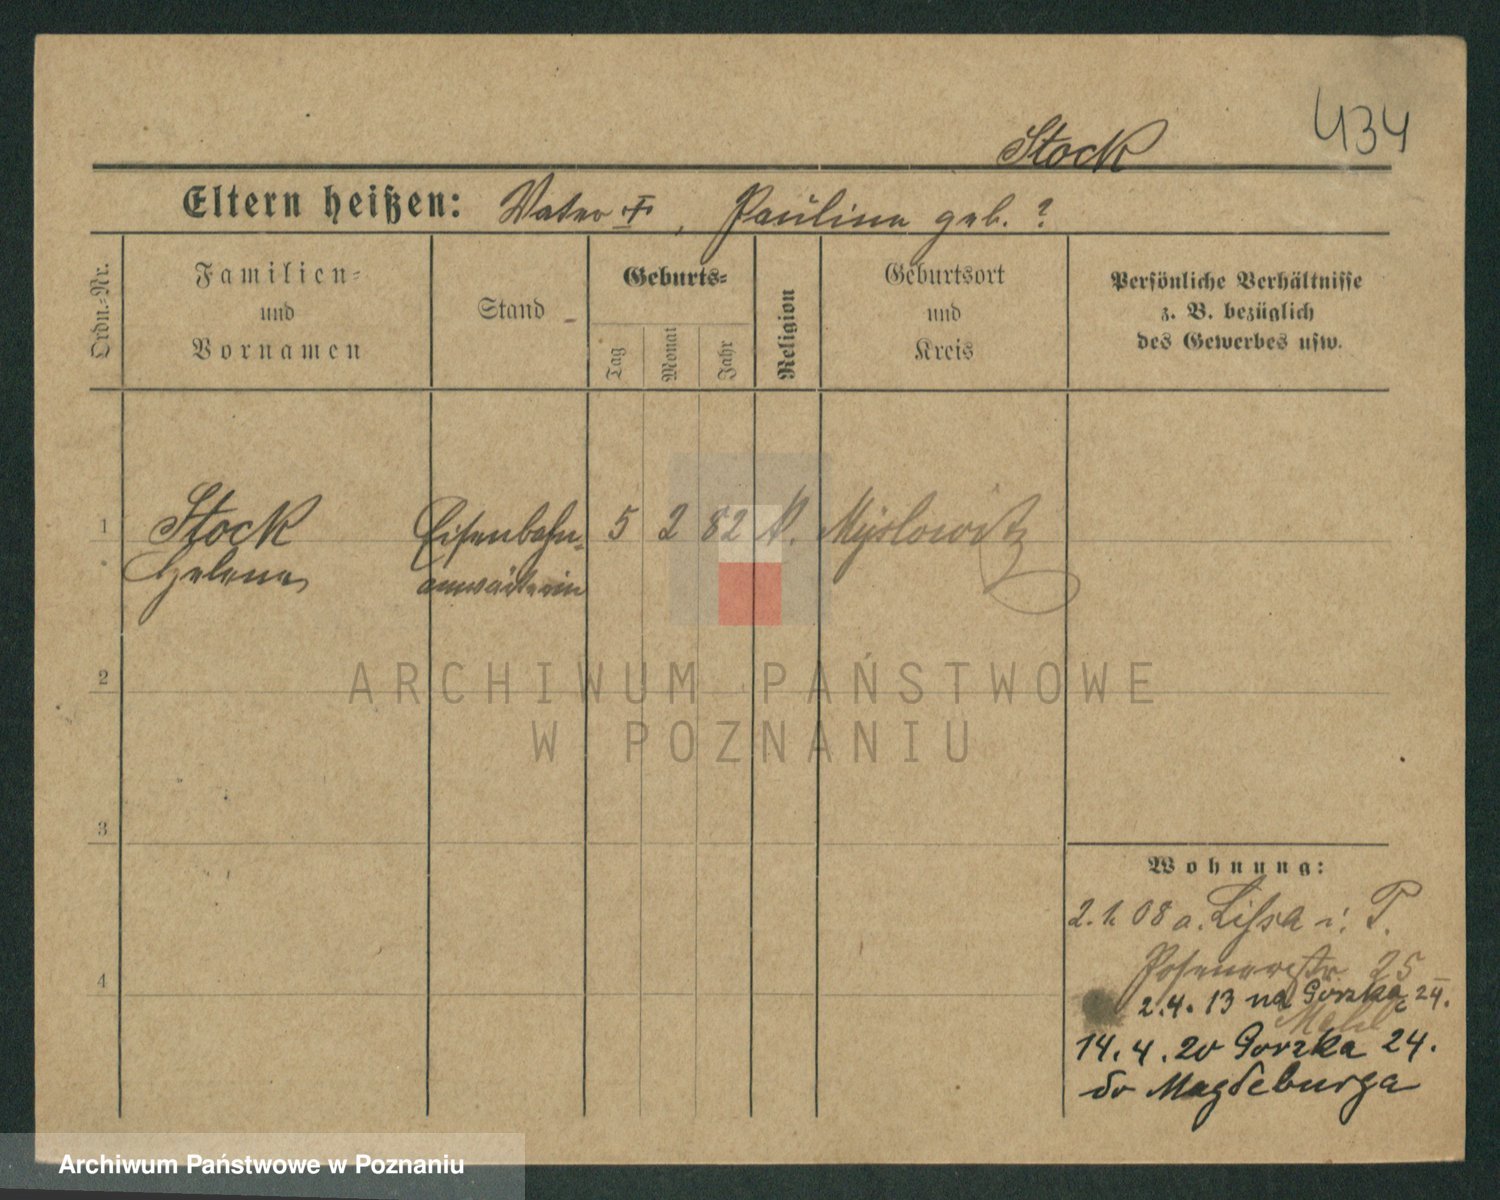 434
Stock
Eltern heißen: Vater †, Paulina geb. ?
Ordn.-Nr.
Familien-
und
Vornamen
Stand
Geburts-
Tag
Monat
Jahr
Religion
Geburtsort
und
Kreis
Persönliche Verhältnisse
z. B. bezüglich
des Gewerbes usw.
1 Stock Eisenbahn- 5 2 82 K. Myslowitz
Helena anwärterin
ARCHIWUM PAŃSTWOWE
W POZNANIU
2
3
4
Wohnung:
2.1.08 a. Lissa i. P.
Posenerstr 25
2.4.13 na Gorzka 24.
14.4.20 Gorzka 24.
do Magdeburga
Archiwum Państwowe w Poznaniu